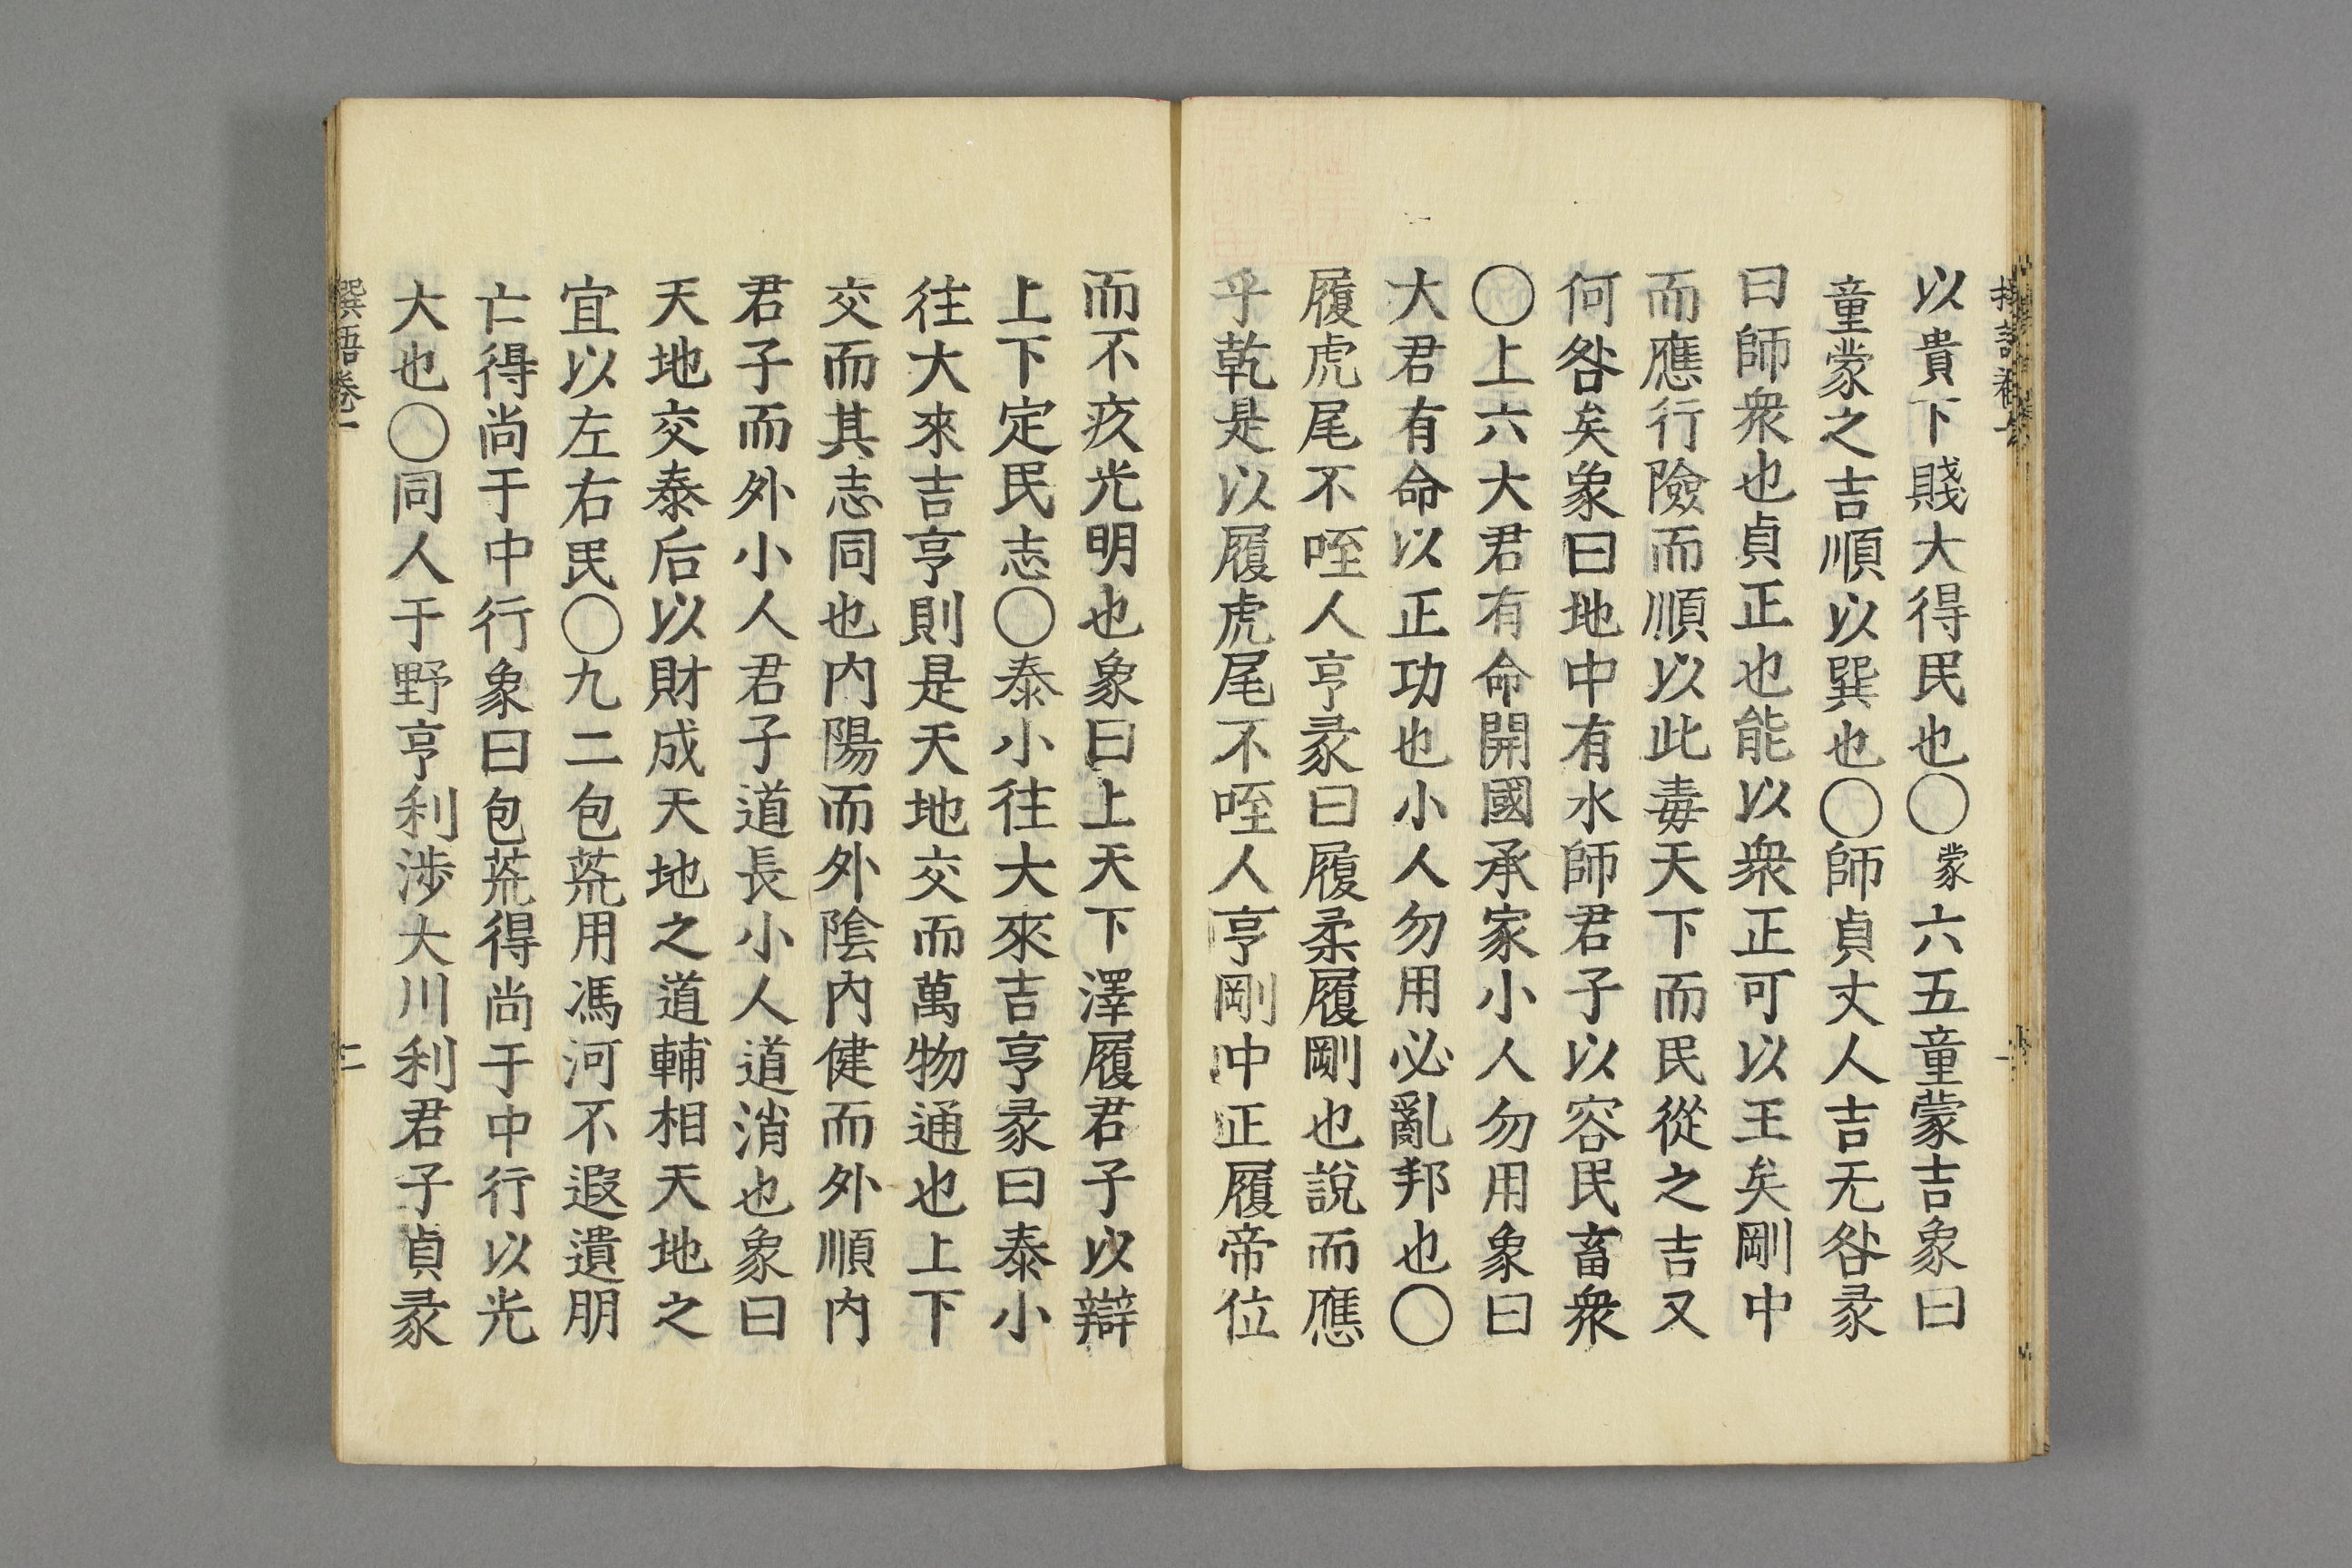 以貴下賤大得民也〇蒙六五童蒙吉象曰
童蒙之吉順以巽也〇師貞丈人吉无咎彖
曰師衆也貞正也能以衆正可以王矣剛中
而應行險而順以此毒天下而民從之吉又
何咎矣象曰地中有水師君子以容民畜衆
〇上六大君有命開國承家小人勿用象曰
大君有命以正功也小人勿用必亂邦也〇
履虎尾不咥人亨彖曰履柔履剛也說而應
乎乾是以履虎尾不咥人亨剛中正履帝位
而不疚光明也象曰上天下澤履君子以辯
上下定民志〇泰小往大來吉亨彖曰泰小
往大來吉亨則是天地交而萬物通也上下
交而其志同也内陽而外陰内健而外順内
君子而外小人君子道長小人道消也象曰
天地交泰后以財成天地之道輔相天地之
宜以左右民〇九二包荒用馮河不遐遺朋
亡得尚于中行象曰包荒得尚于中行以光
大也〇同人于野亨利涉大川利君子貞彖
譔語卷一
二